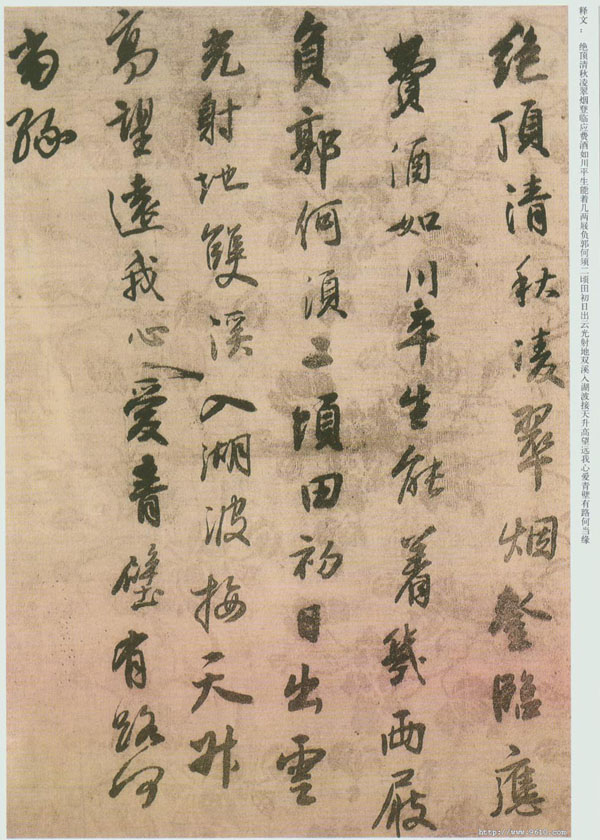 释文：
绝顶清秋凌翠烟登临应费酒如川平生能着几两屐负郭何须二顷田初日出云光射地双溪入湖波接天升高望远我心爱青壁有路何当缘
絶頂清秋凌翠烟登臨應
費酒如川平生能着幾兩屐
負郭何須二頃田初日出雲
光射地雙溪入湖波接天升
高望遠我心愛青壁有路何
當緣
http://www.9610.com